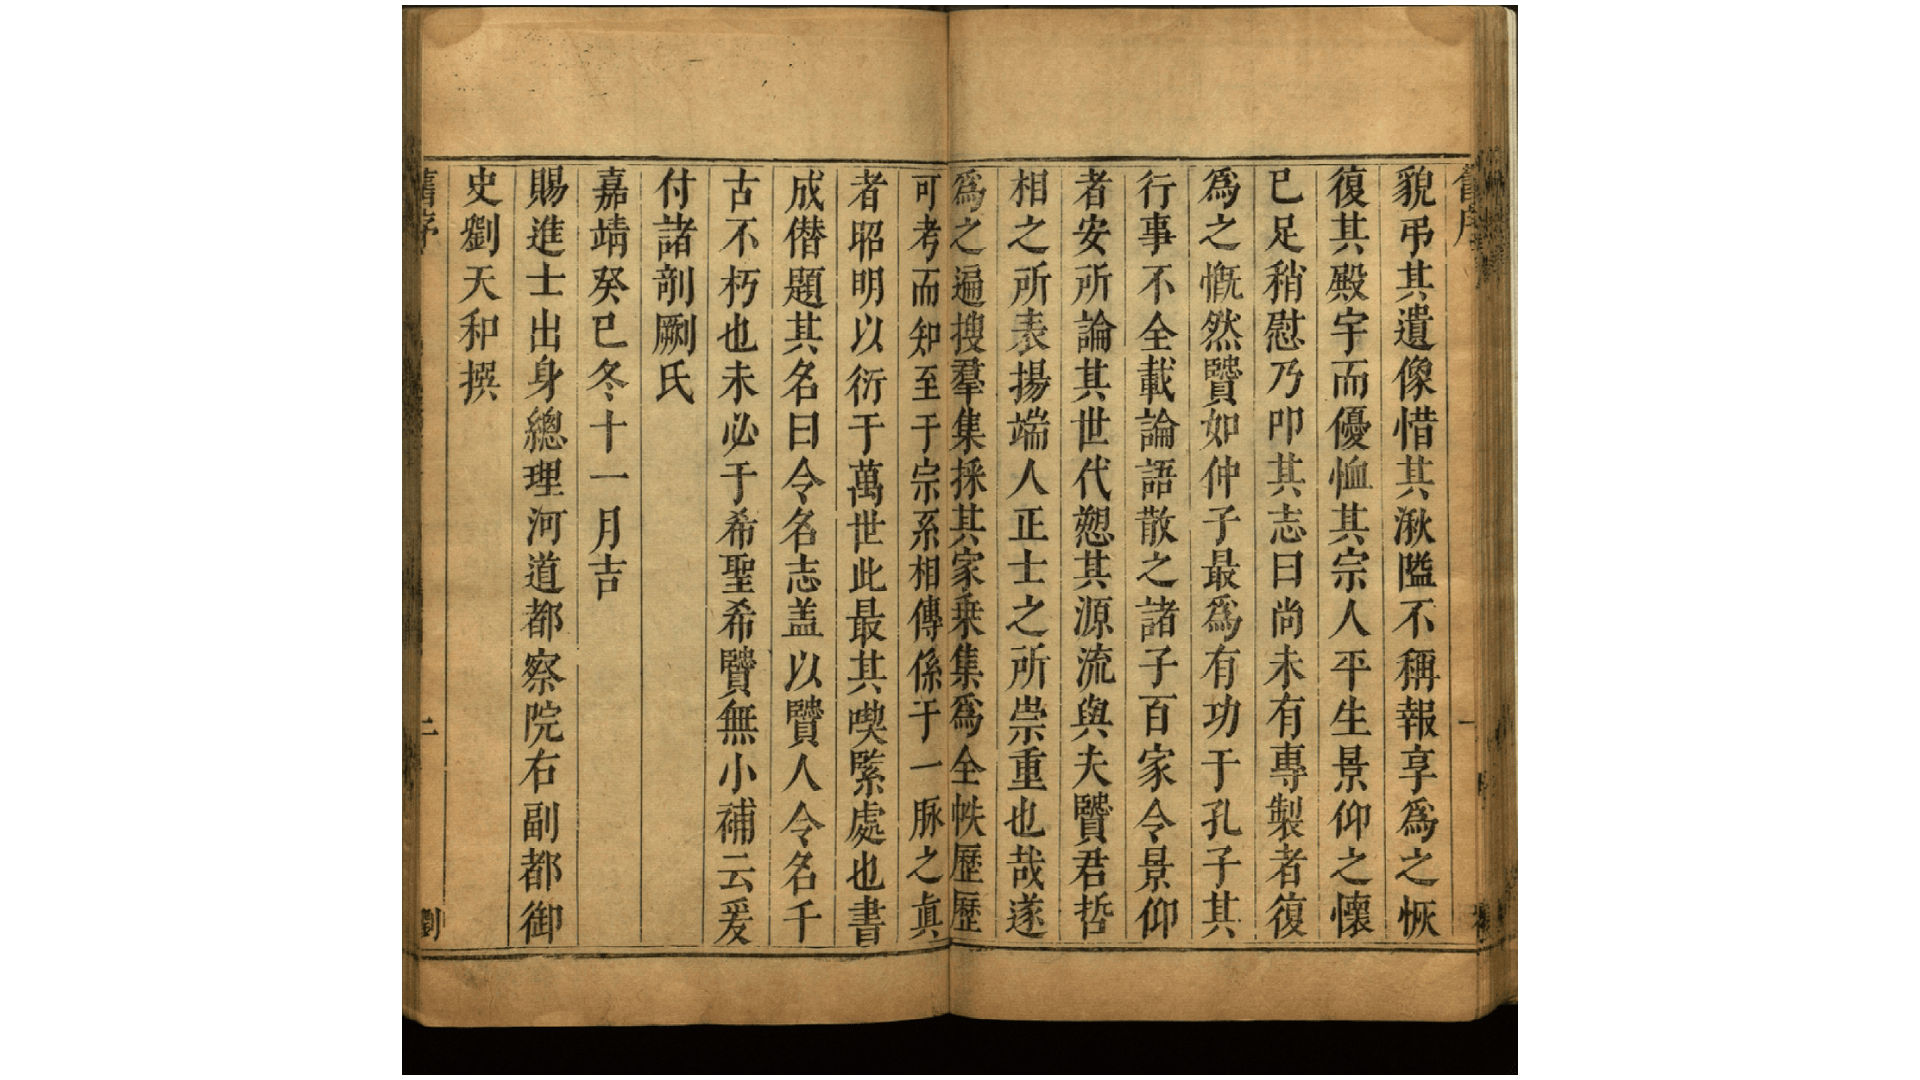 舊序
貌弔其遺像惜其湫隘不稱報享爲之恢
復其殿宇而優恤其宗人平生景仰之懷
已足稍慰乃叩其志曰尚未有專製者復
爲之慨然贒如仲子最爲有功于孔子其
行事不全載論語散之諸子百家令景仰
者安所論其世代愬其源流與夫贒君哲
相之所表揚端人正士之所崇重也哉遂
爲之遍搜羣集採其家乗集爲全帙歷歷
可考而知至于宗系相傳係于一脉之眞
者昭明以衍于萬世此最其喫緊處也書
成僣題其名曰令名志盖以贒人令名千
古不朽也未必于希聖希贒無小補云爰
付諸剞劂氏
嘉靖癸巳冬十一月吉
賜進士出身總理河道都察院右副都御
史劉天和撰
舊序
二
劉